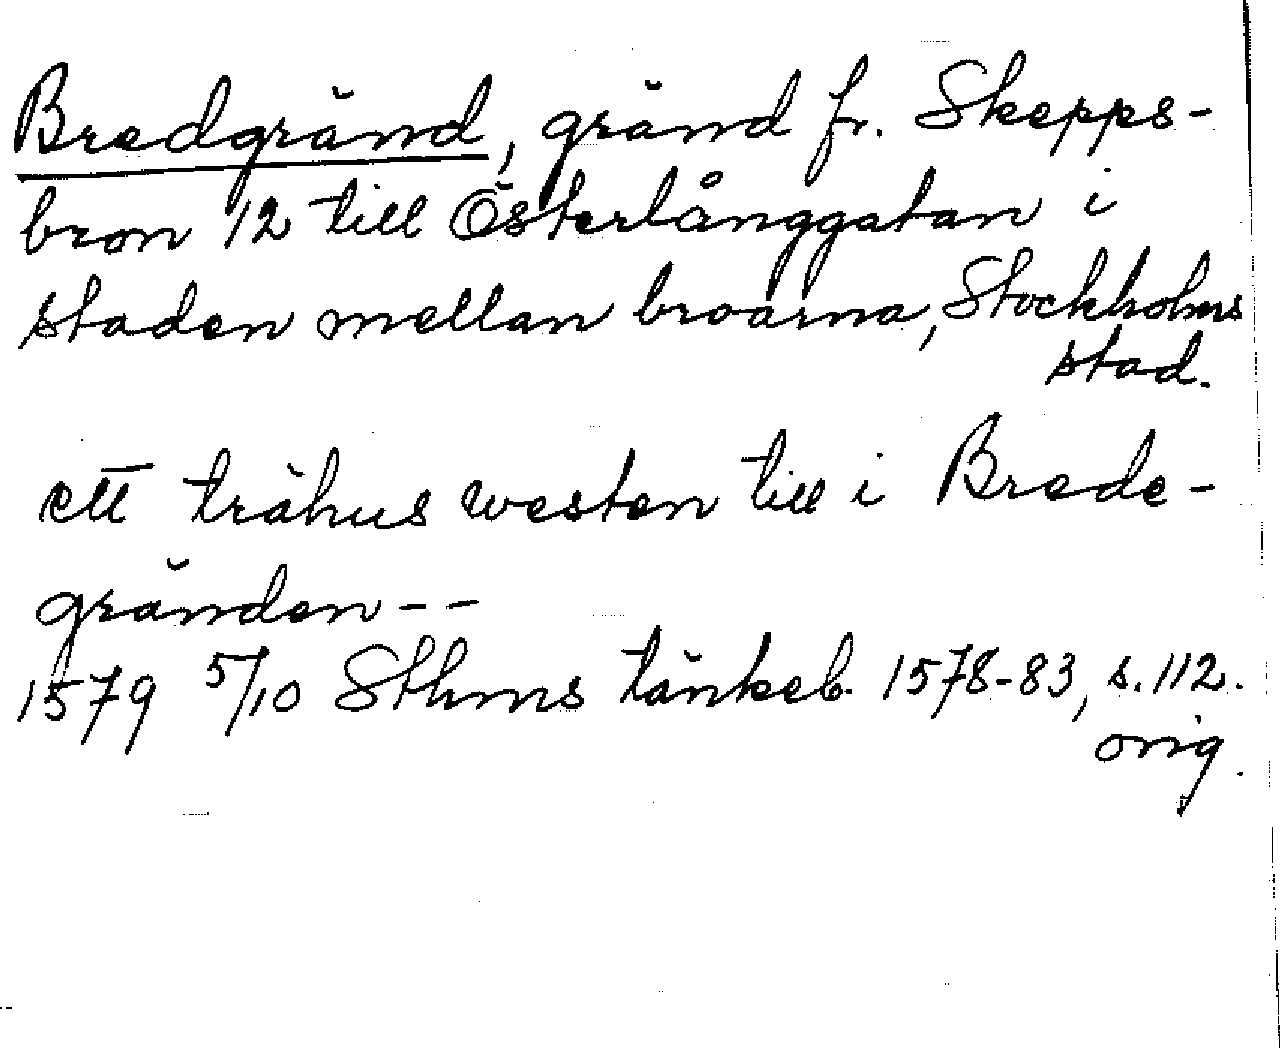 Bredgränd, gränd fr. Skepps-
bron 12 till Österlånggatan i
staden mellan broarna, Stockholms
stad.
ett trähus westen till i Brede-
gränden--
1579 5/10 Sthms tänkeb. 1578-83, s.112.
orig.